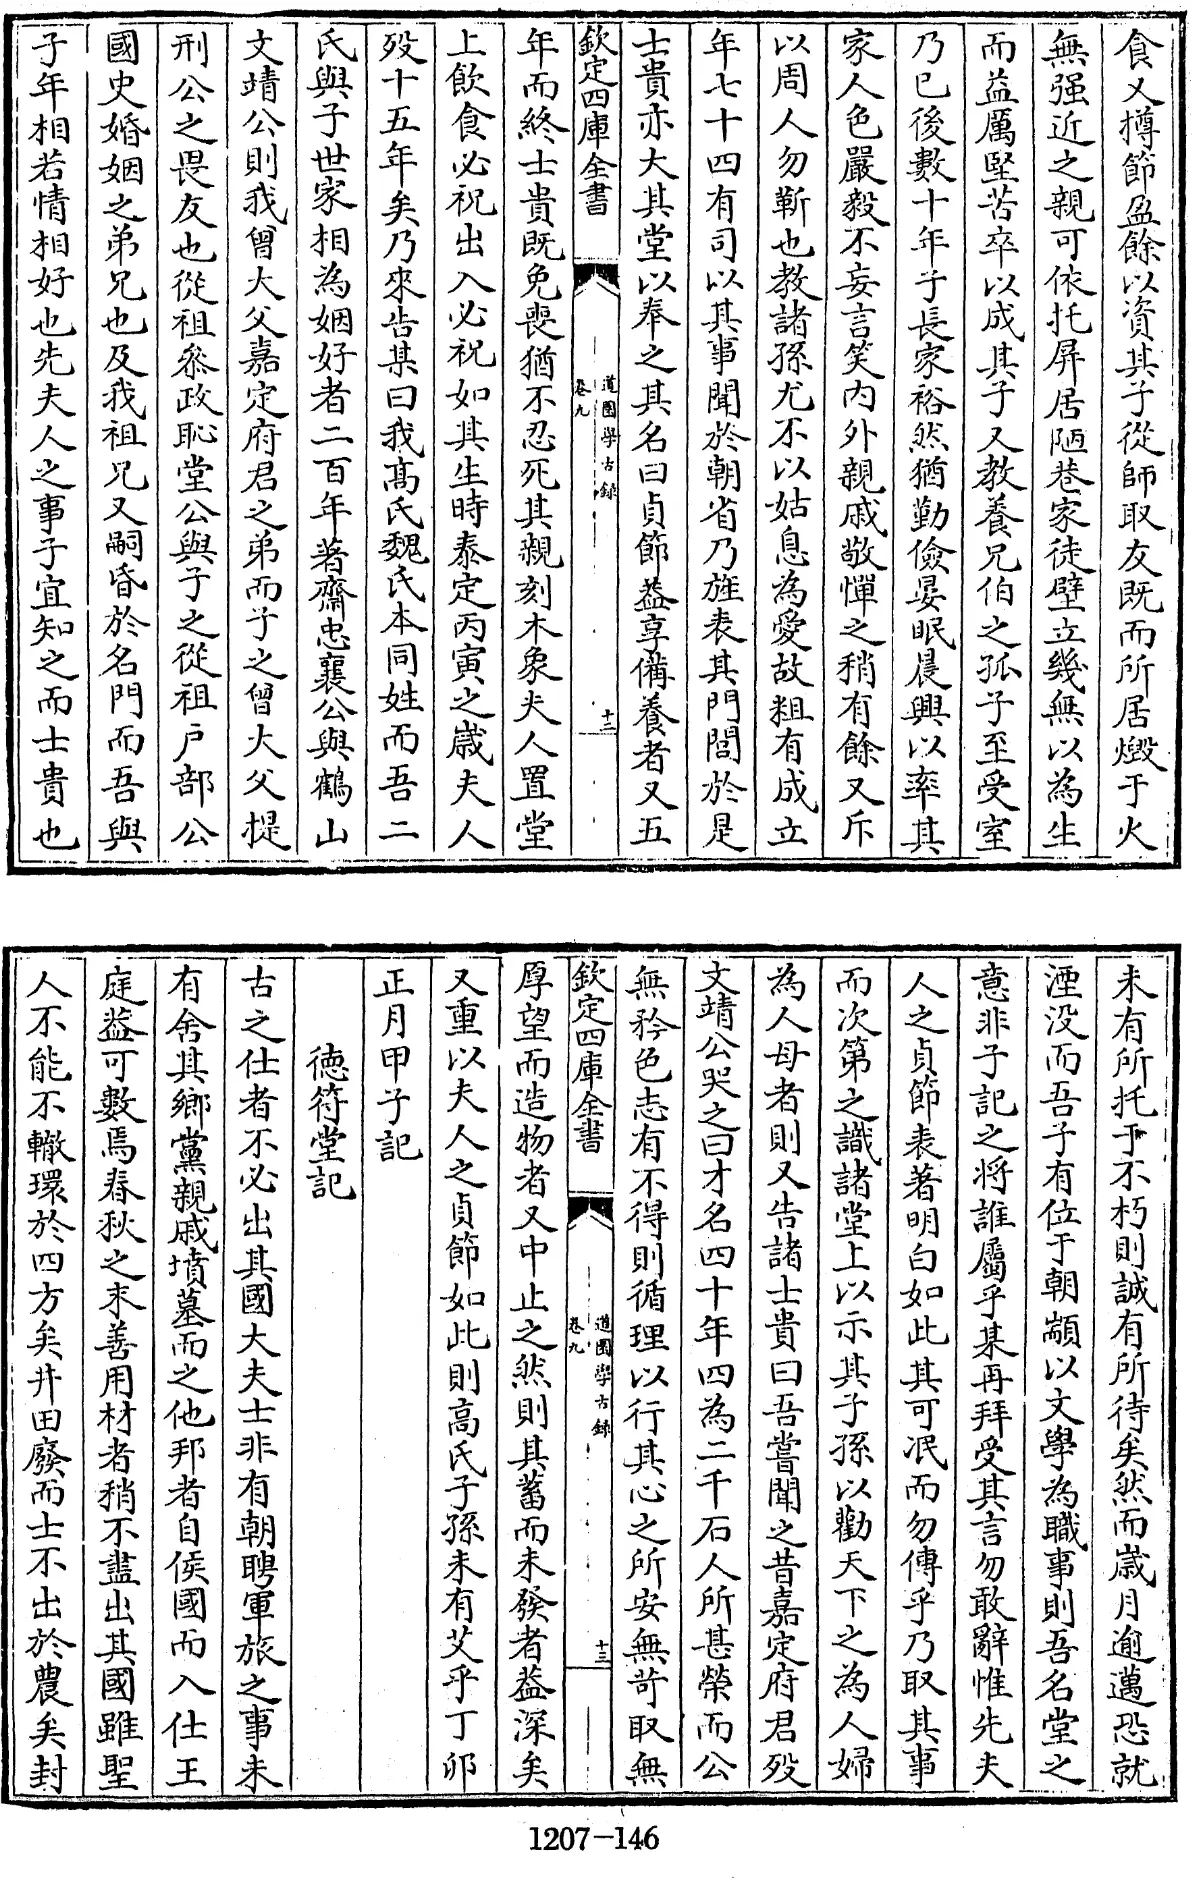 食又撙節盈餘以資其子從師取友既而所居燬于火
無强近之親可依托屏居陋巷家徒壁立幾無以為生
而益厲堅苦卒以成其子又教養兄伯之孤子至受室
乃已後數十年子長家裕然猶勤儉晏眠晨興以率其
家人色嚴毅不妄言笑内外親戚敬憚之稍有餘又斥
以周人勿靳也教諸孫尤不以姑息為愛故粗有成立
年七十四有司以其事聞於朝省乃旌表其門閭於是
士貴亦大其堂以奉之其名曰貞節益享備養者又五
欽定四庫全書
道園學古錄
卷九
十二
年而終士貴既免喪猶不忍死其親刻木象夫人置堂
上飲食必祝出入必祝如其生時泰定丙寅之歲夫人
殁十五年矣乃來告某曰我髙氏魏氏本同姓而吾二
氏與子世家相為姻好者二百年著齋忠襄公與鶴山
文靖公則我曾大父嘉定府君之弟而子之曾大父提
刑公之畏友也從祖叅政恥堂公與子之從祖户部公
國史婚姻之弟兄也及我祖兄又嗣昏於名門而吾與
子年相若情相好也先夫人之事子宜知之而士貴也
未有所托于不朽則誠有所待矣然而歲月逾邁恐就
湮没而吾子有位于朝顓以文學為職事則吾名堂之
意非子記之將誰屬乎某再拜受其言勿敢辭惟先夫
人之貞節表著明白如此其可泯而勿傳乎乃取其事
而次第之識諸堂上以示其子孫以勸天下之為人婦
為人母者則又告諸士貴曰吾嘗聞之昔嘉定府君殁
文靖公哭之曰才名四十年四為二千石人所甚榮而公
無矜色志有不得則循理以行其心之所安無苛取無
欽定四庫全書
道園學古錄
卷九
十三
厚望而造物者又中止之然則其蓄而未發者益深矣
又重以夫人之貞節如此則高氏子孫未有艾乎丁卯
正月甲子記
德符堂記
古之仕者不必出其國大夫士非有朝聘軍旅之事未
有舍其鄉黨親戚墳墓而之他邦者自侯國而入仕王
庭益可數焉春秋之末善用材者稍不盡出其國雖聖
人不能不轍環於四方矣井田廢而士不出於農矣封
1207-146